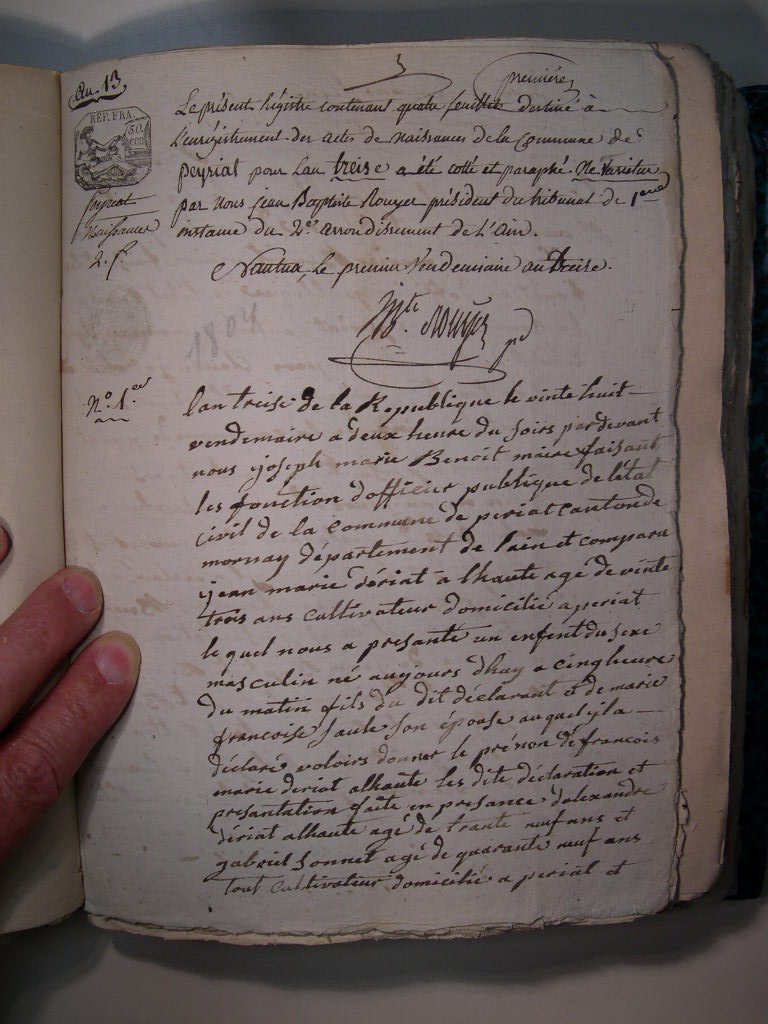 An. 13
premiere
RÉP. FRA.
50.
cen
Le présent Régistre contenant quatre feuillets destiné à
L'enregistrement des actes de Naissances de la Commune de
peyriat pour l'an treise a été cotté et paraphé Ne Varietur
par Nous jean Baptiste Rouyer président du tribunal de 1ere
instance du 2e. arrondissement de L'ain.
Peyriat
Naissances
2. f.
Nantua, le premier Vendemiaire an treise.
Bte. Rouyer pd
1804
No. 1.er
lan treise de la Republique le vinte huit
vendemaire a deux heure du soirs pardevant
nous joseph marie Benoit maire faisant
les fonction dofficier publique de létat
civil de la commune de periat canton de
mornay département de lain et compara
jean marie dériat a lhaute agé de vinte
trois ans cultivateur domicilié a periat
le quel nous a presanté un enfent du sexe
masculin né aujours dhuy a cinq heure
du matin fils du dit déclarant et de marie
francoise saule son épouse au quel jl a
déclaré voloirs donner le prénon de francois
marie deriat alhaute les dite déclaration et
presantation faite en presance dalexandre
dériat alhaute agé de trante neuf ans et
gabriel sonnet agé de quarante neuf ans
tout cultivateur domicilié a periat et